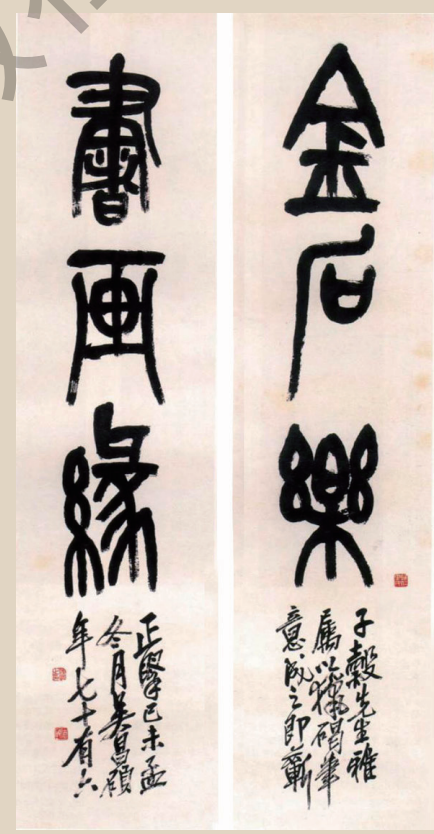 金石樂
子穀先生雅
屬以獵碣筆
意成之即蘄
書画緣
正 己未孟
冬月吳昌碩
年七十有六